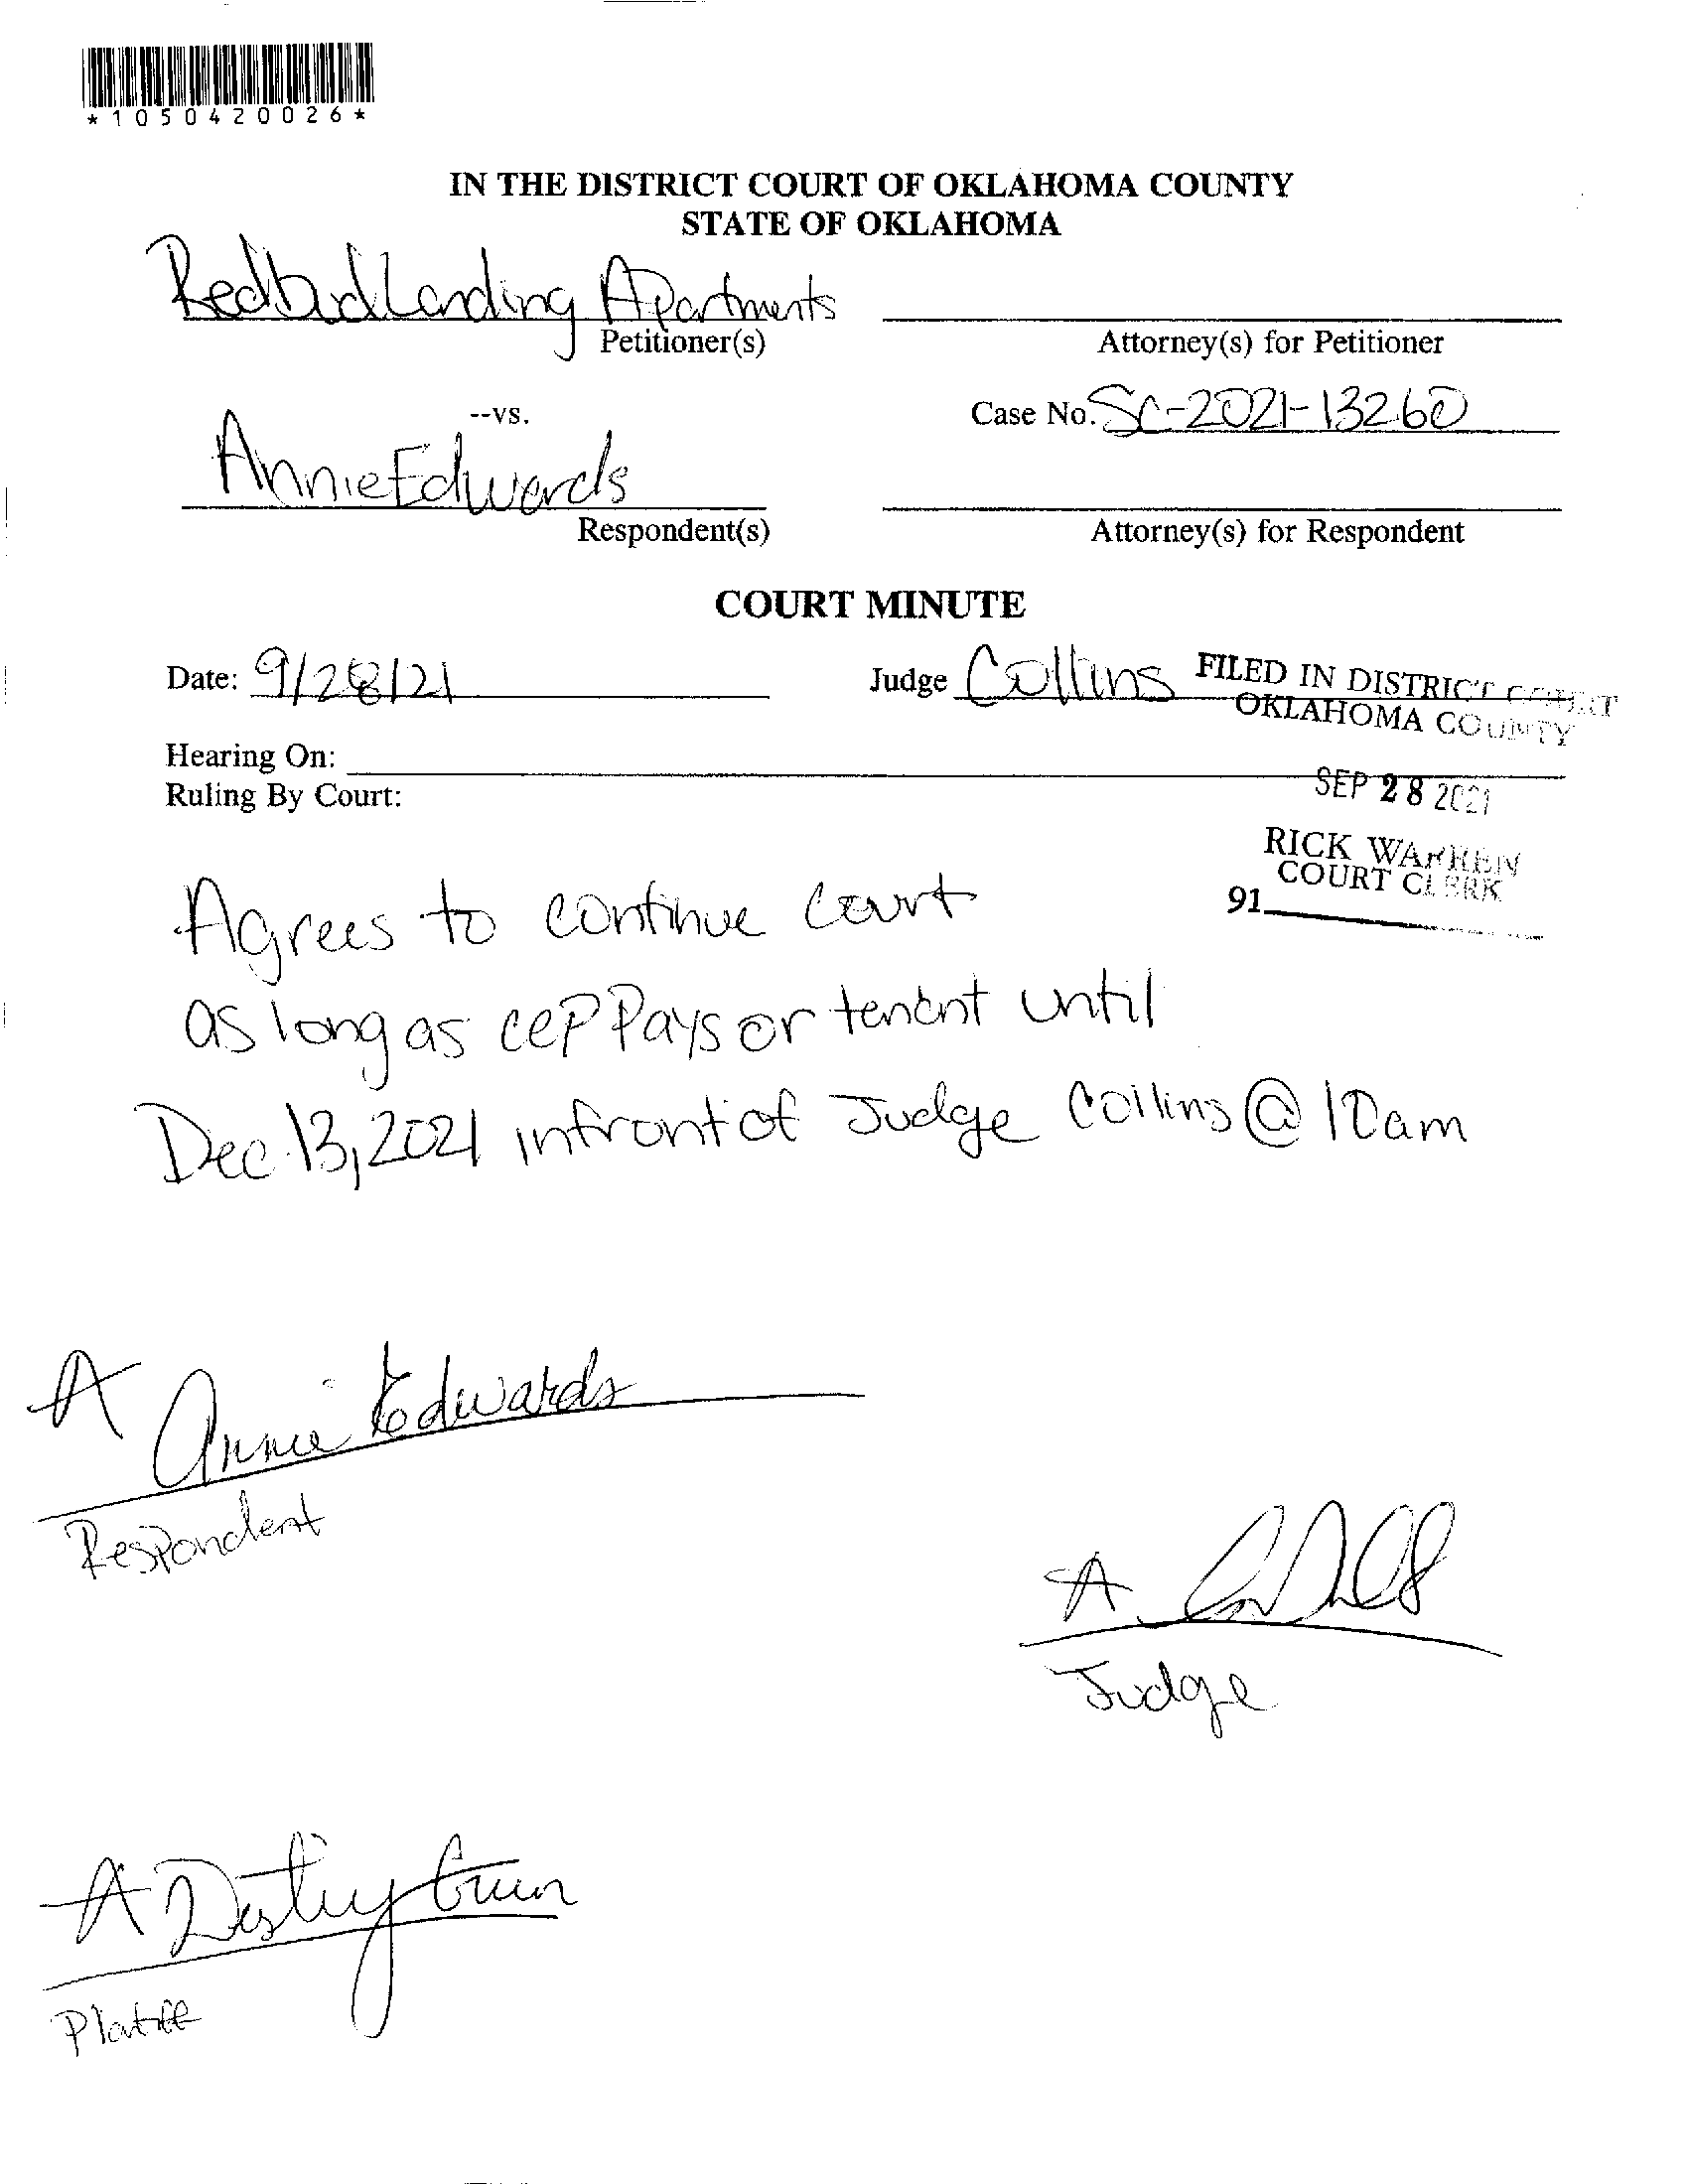 *1050420026*
IN THE DISTRICT COURT OF OKLAHOMA COUNTY
STATE OF OKLAHOMA
Redbud Landing Apartments
Petitioner(s)
Attorney(s) for Petitioner
--vs.
Case No. SC-2021-13260
Annie Edwards
Respondent(s)
Attorney(s) for Respondent
COURT MINUTE
Date: 9/28/21
Judge Collins
FILED IN DISTRICT COURT
OKLAHOMA COUNTY
Hearing On:
SEP 28 2021
Ruling By Court:
RICK WARREN
COURT CLERK
91
Agrees to continue court
as long as CEP Pays or tenant until
Dec 13, 2021 infront of Judge Collins @ 10am
A Annie Edwards
Respondent
A
Judge
A Destiny
Platiff